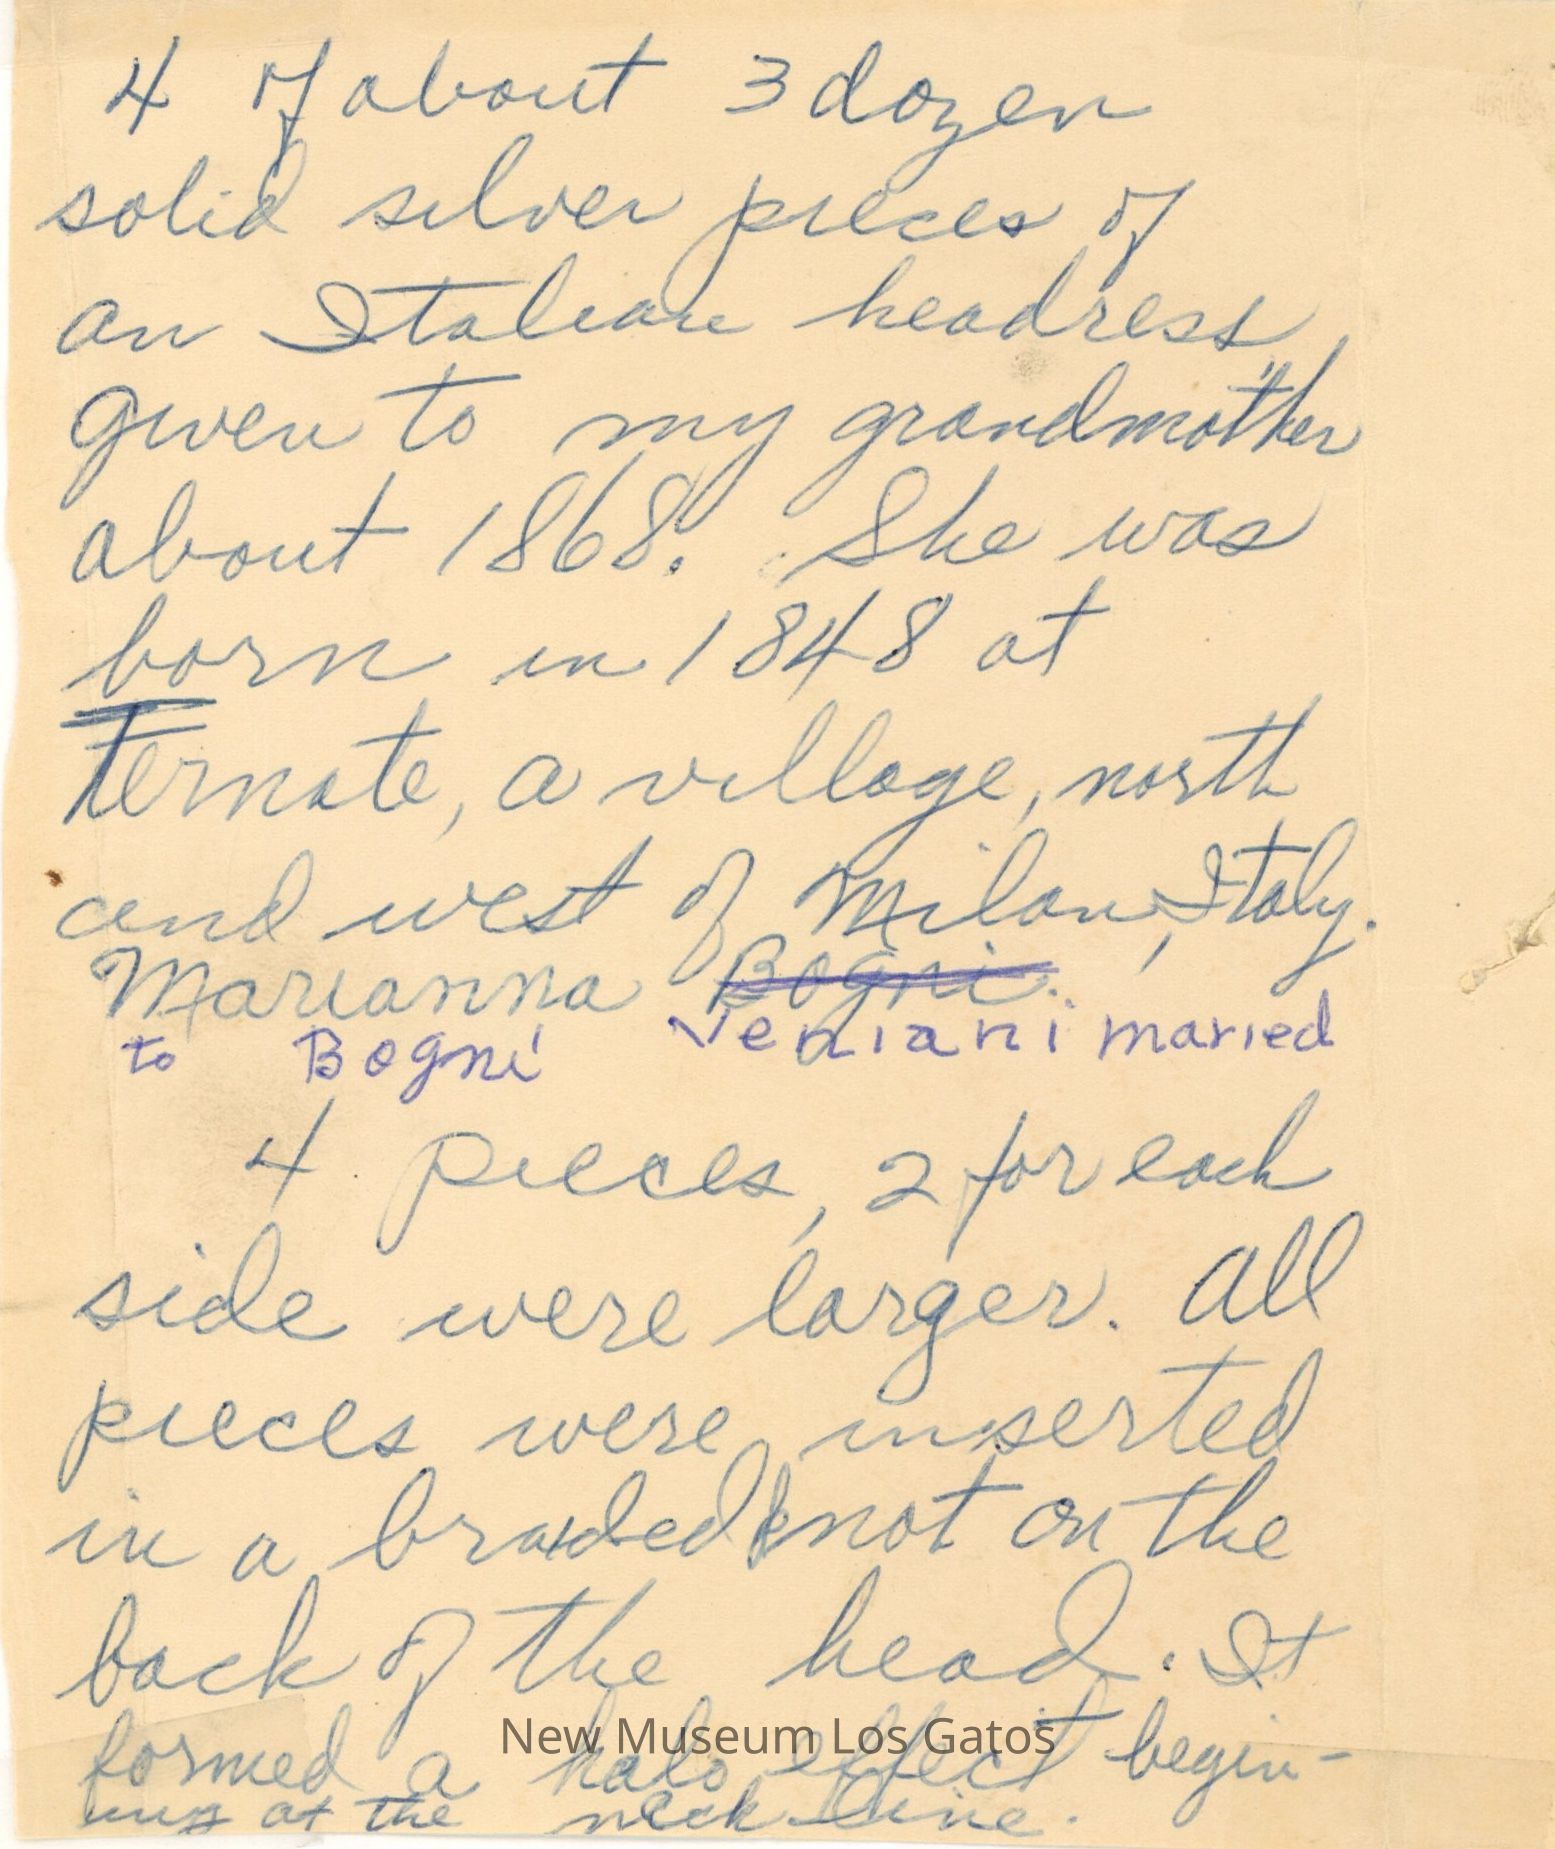 4 of about 3 dozen
solid silver pieces of
an Italian headress,
given to my grandmother
about 1868. She was
born in 1848 at
Ternate, a village, north
and west of Milan, Italy.
Marianna Bogni.
Veniani maried
to Bogni
4 pieces, 2 for each
side were larger. All
pieces were inserted
in a braided knot on the
back of the head. It
formed a halo effect begin-
ning at the neck line.
New Museum Los Gatos